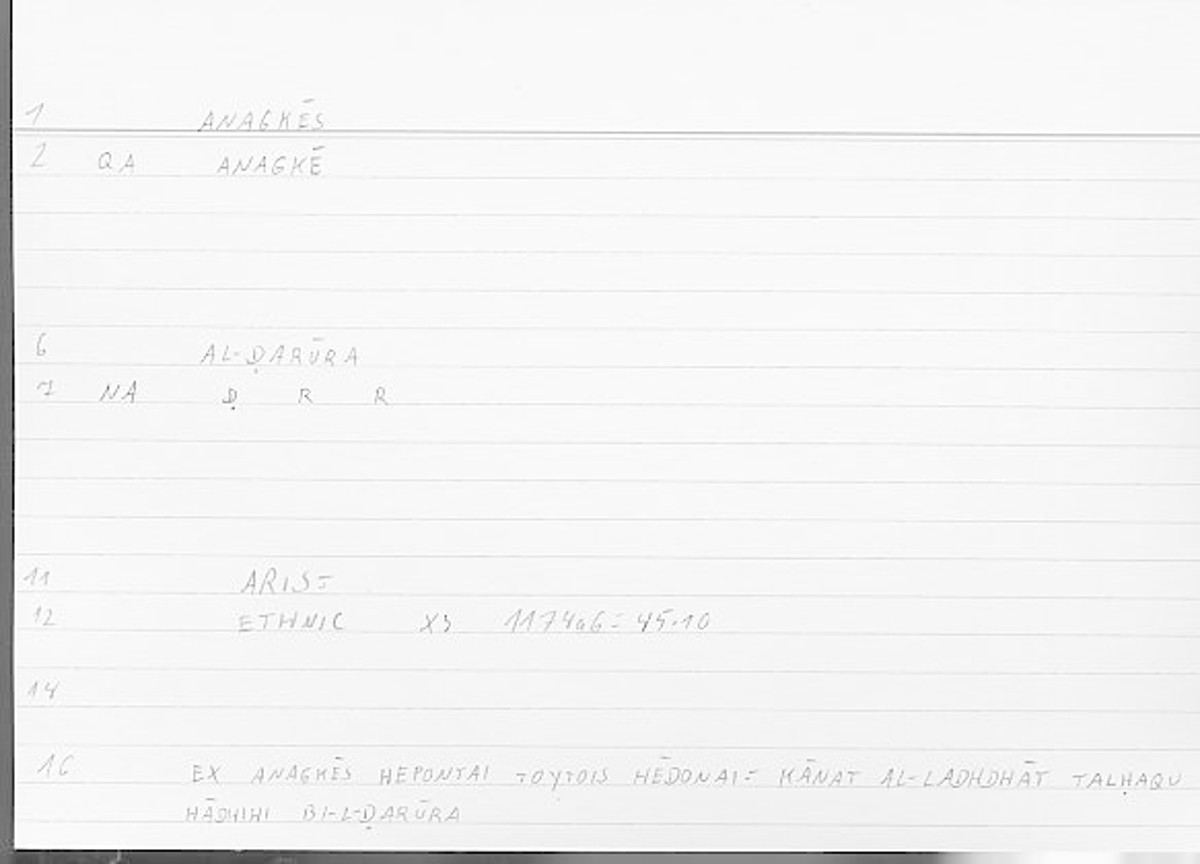 1 ANAGKĒS
2 QA ANAGKĒ
6 AL-ḌARŪRA
7 NA Ḍ R R
11 ARIST
12 ETHNIC X3 1174a6= 45.10
14
16 EX ANAGKĒS HEPONTAI TOYTOIS HĒDONAI= KĀNAT AL-LADHDHĀT TALḤAQU
HĀDHIHI BI-L-ḌARŪRA